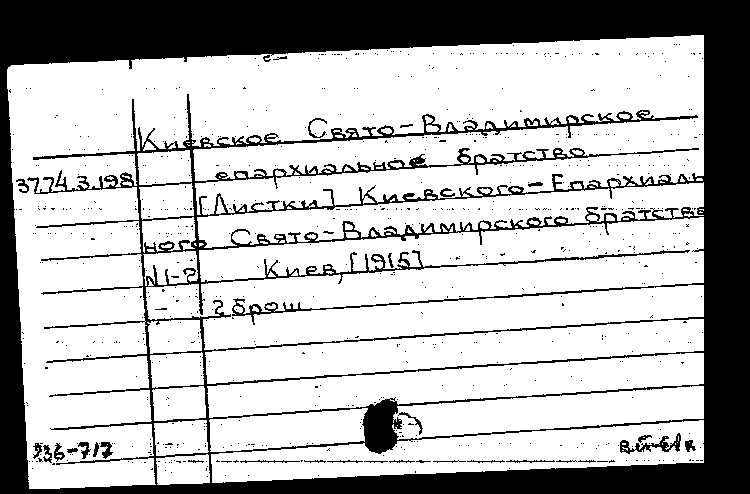 Киевское Свято-Владимирское
епархиальное братство
37.74.3.198
[Листки] Киевского-Епархиаль
ного Свято-Владимирского братства
N1-2 Киев, [1915]
- 2 брош
236-717